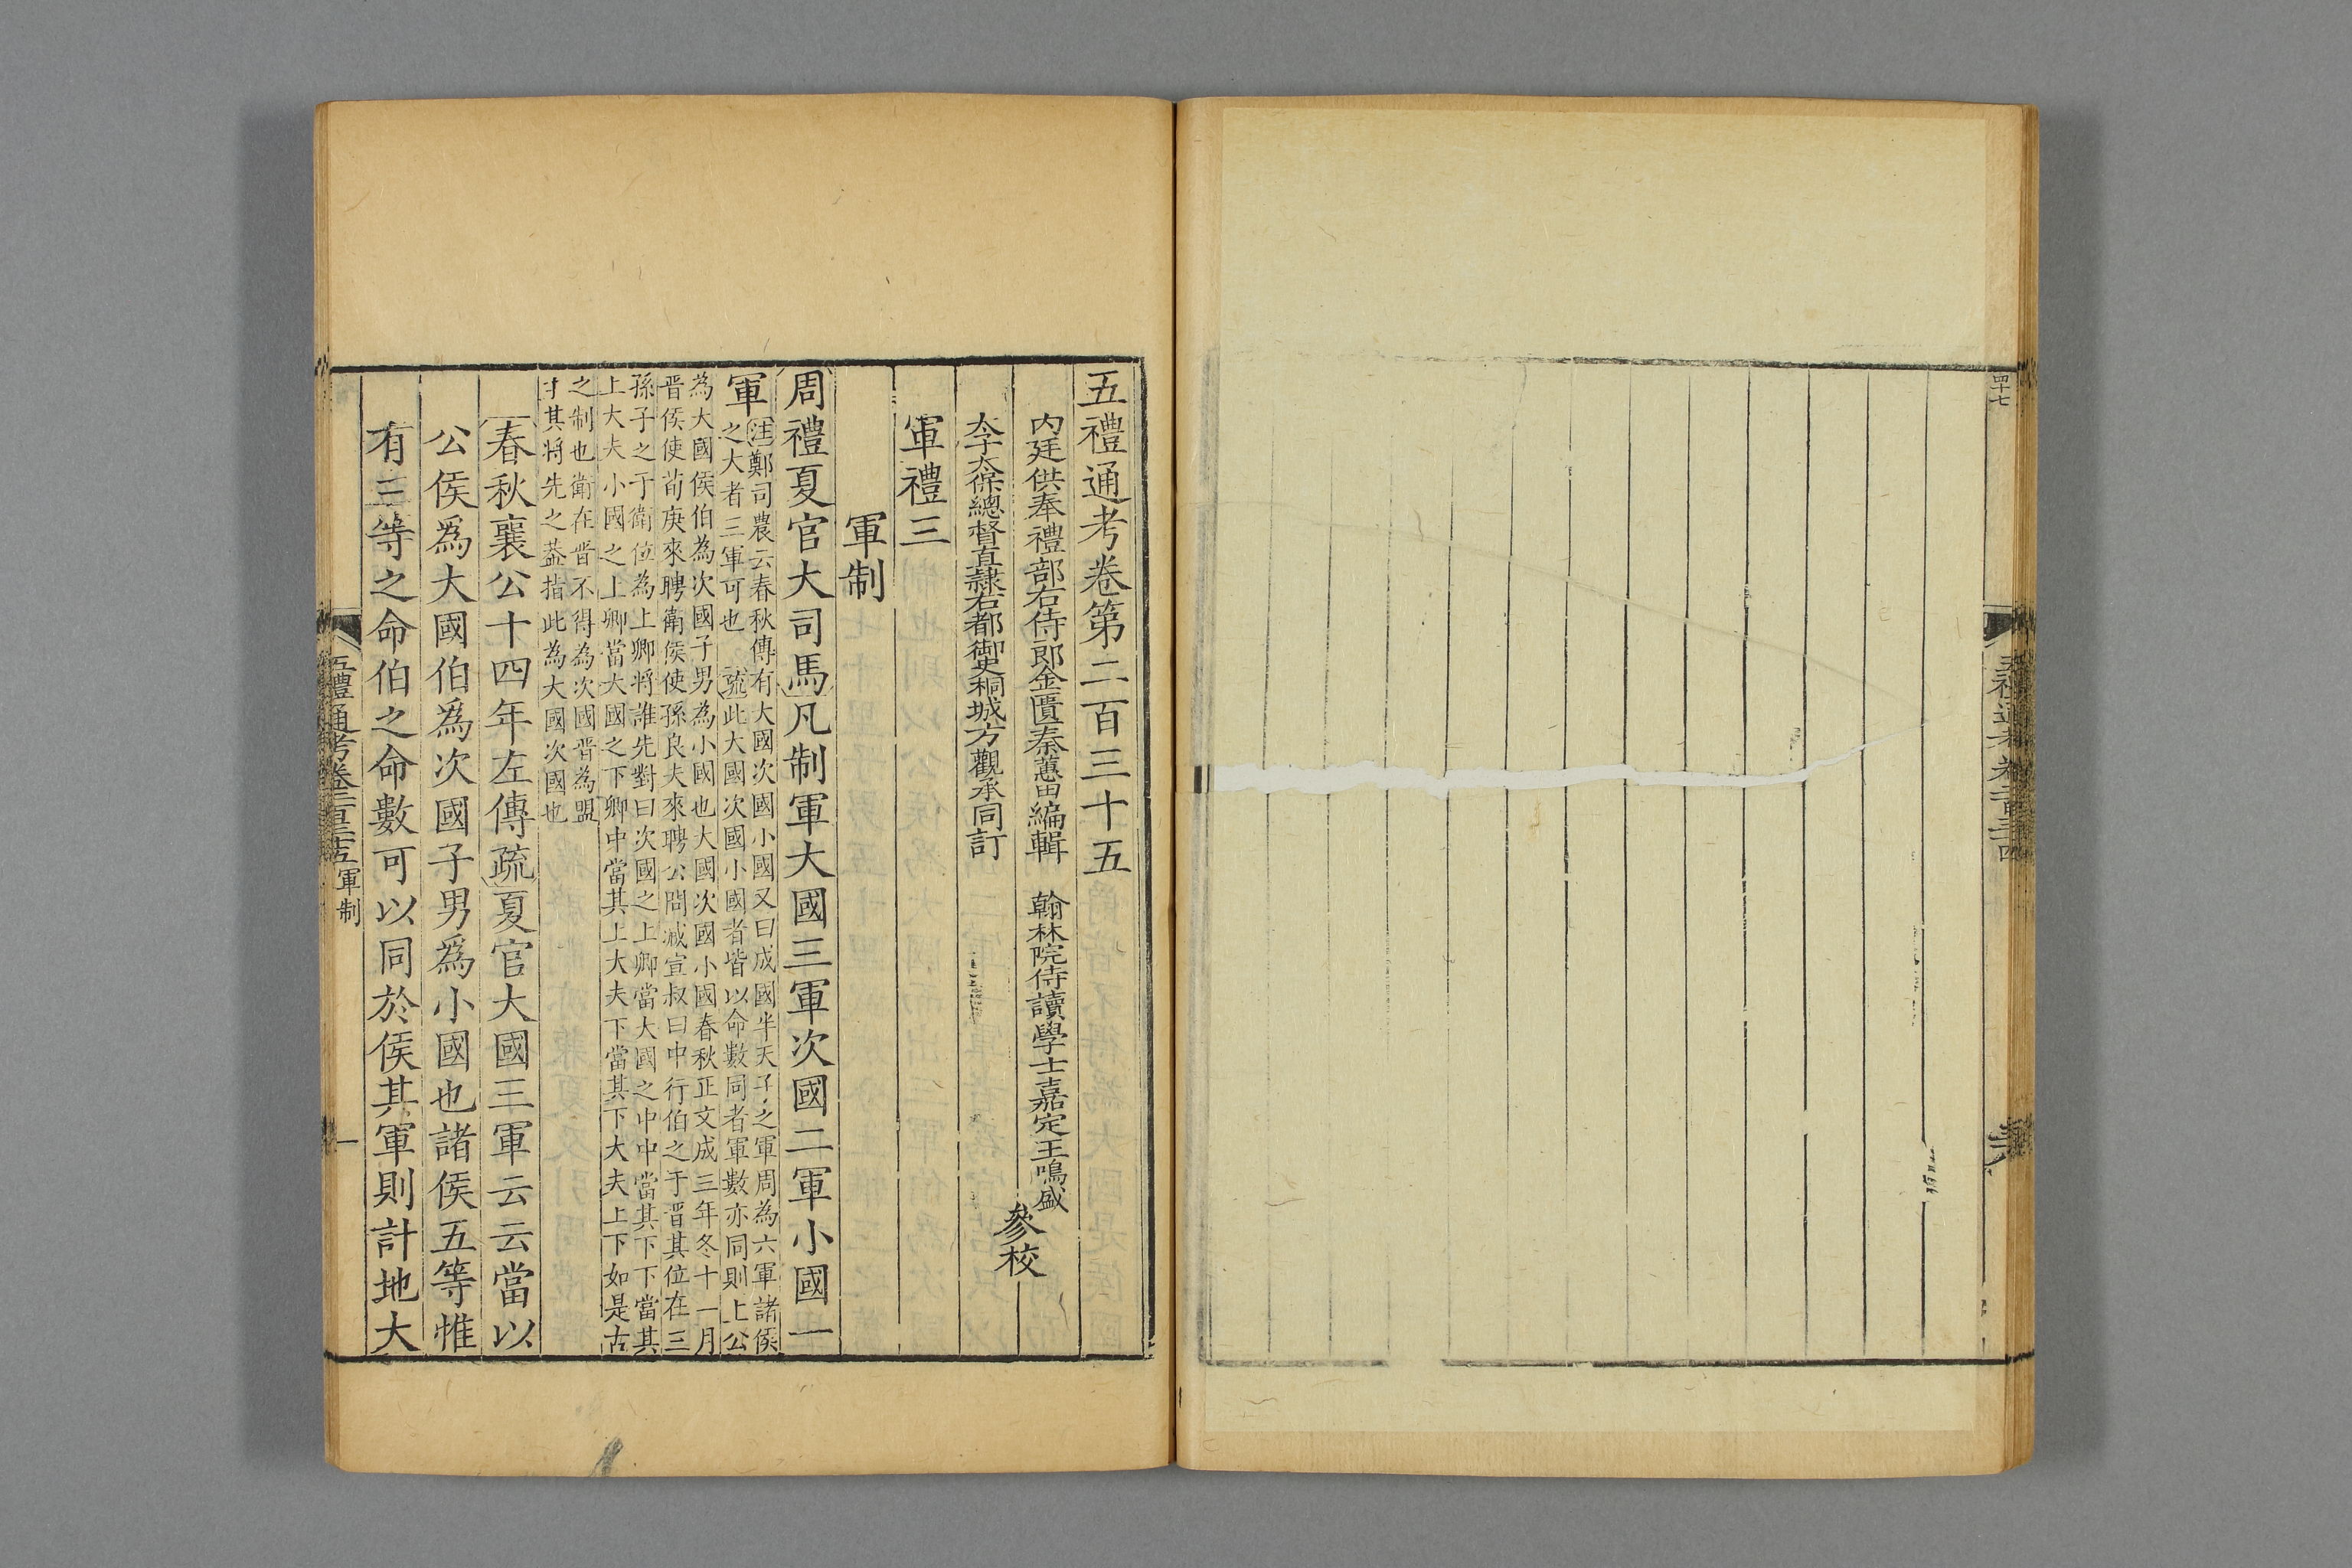 五禮通考卷第二百三十五
内廷供奉禮部右侍郎金匱秦蕙田編輯 翰林院侍讀學士嘉定王鳴盛
太子太保總督直隸右都御史桐城方觀承同訂
參校
軍禮三
軍制
周禮夏官大司馬凡制軍大國三軍次國二軍小國一
軍
注鄭司農云春秋傳有大國次國小國又曰成國半天子之軍周為六軍諸侯
之大者三軍可也 疏此大國次國小國者皆以命數同者軍數亦同則上公
為大國侯伯為次國子男為小國也大國次國小國春秋正文成三年冬十一月
晉侯使荀庚來聘衛侯使孫良夫來聘公問臧宣叔曰中行伯之于晉其位在三
孫子之于衛位為上卿將誰先對曰次國之上卿當大國之中中當其下下當其
上大夫小國之上卿當大國之下卿中當其上大夫下當其下大夫上下如是古
之制也衛在晉不得為次國晉為盟
才其將先之葢指此為大國次國也
春秋襄公十四年左傳疏夏官大國三軍云云當以
公侯爲大國伯爲次國子男爲小國也諸侯五等惟
有三等之命伯之命數可以同於侯其軍則計地大
五禮通考卷二百三十五軍制
一